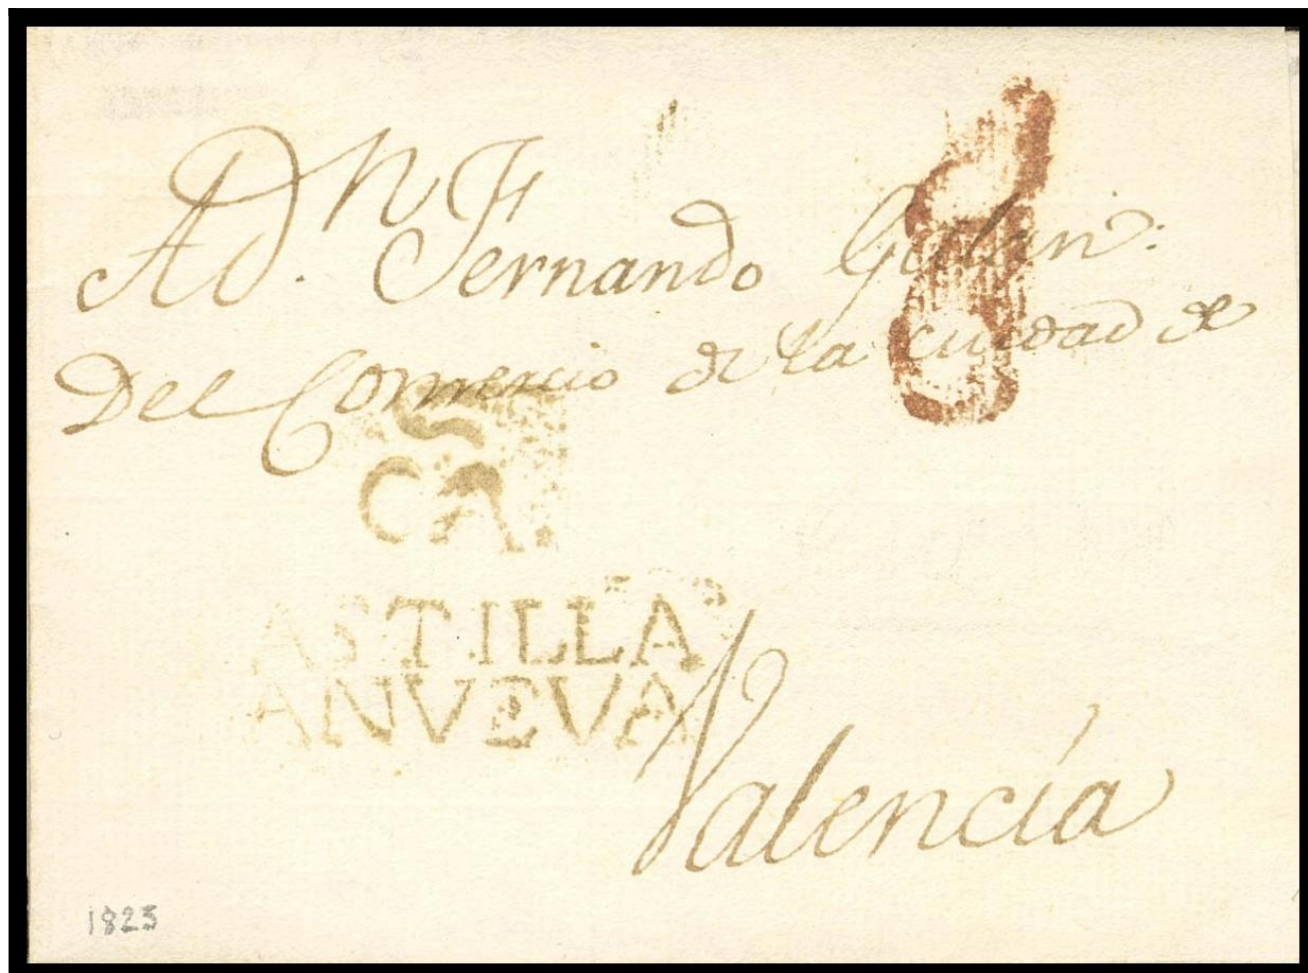 A Dⁿ. Fernando Galin:
Del Comercio de la ciudad de
S
CA.
ASTILLA
ANUEVA
Valencía
1823